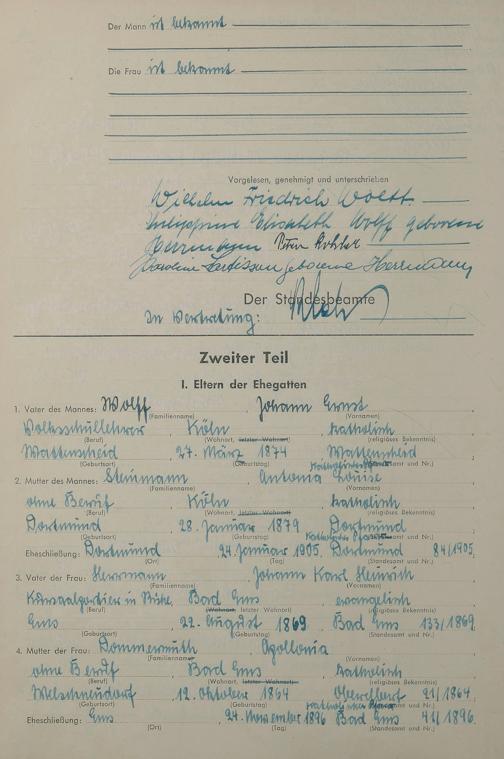 Der Mann ist bekannt
Die Frau ist bekannt
Vorgelesen, genehmigt und unterschrieben
Wilhelm Friedrich Wolff
Philippine Elisabeth Wolff geborene
Herrmann Peter
Karoline geborene Herrmann
Der Standesbeamte
In Vertretung:
Zweiter Teil
I. Eltern der Ehegatten
1. Vater des Mannes: Wolff, Johann Ernst
(Familienname) (Vornamen)
Volksschullehrer, Köln katholisch
(Beruf) (Wohnort, letzter Wohnort) (religiöses Bekenntnis)
Wattenscheid 27. März 1874 Wattenscheid
(Geburtsort) (Geburtstag) (Standesamt und Nr.)
2. Mutter des Mannes: Steinmann, Antonia Louise
(Familienname) (Vornamen)
ohne Beruf, Köln katholisch
(Beruf) (Wohnort, letzter Wohnort) (religiöses Bekenntnis)
Dortmund 28. Januar 1879 Dortmund
(Geburtsort) (Geburtstag) (Standesamt und Nr.)
Eheschließung: Dortmund 24. Januar 1905, Dortmund 84/1905.
(Ort) (Tag) (Standesamt und Nr.)
3. Vater der Frau: Herrmann, Johann Karl Heinrich
(Familienname) (Vornamen)
Kursaalportier in Ruhe, Bad Ems evangelisch
(Beruf) (Wohnort, letzter Wohnort) (religiöses Bekenntnis)
Ems 22. August 1869 Bad Ems 133/1869.
(Geburtsort) (Geburtstag) (Standesamt und Nr.)
4. Mutter der Frau: Dommermuth, Apollonia
(Familienname) (Vornamen)
ohne Beruf, Bad Ems katholisch
(Beruf) (Wohnort, letzter Wohnort) (religiöses Bekenntnis)
Welschneudorf 12. Oktober 1864 Oberelbert 21/1864.
(Geburtsort) (Geburtstag) (Standesamt und Nr.)
Eheschließung: Ems, 24. November 1896 Bad Ems 41/1896.
(Ort) (Tag) (Standesamt und Nr.)